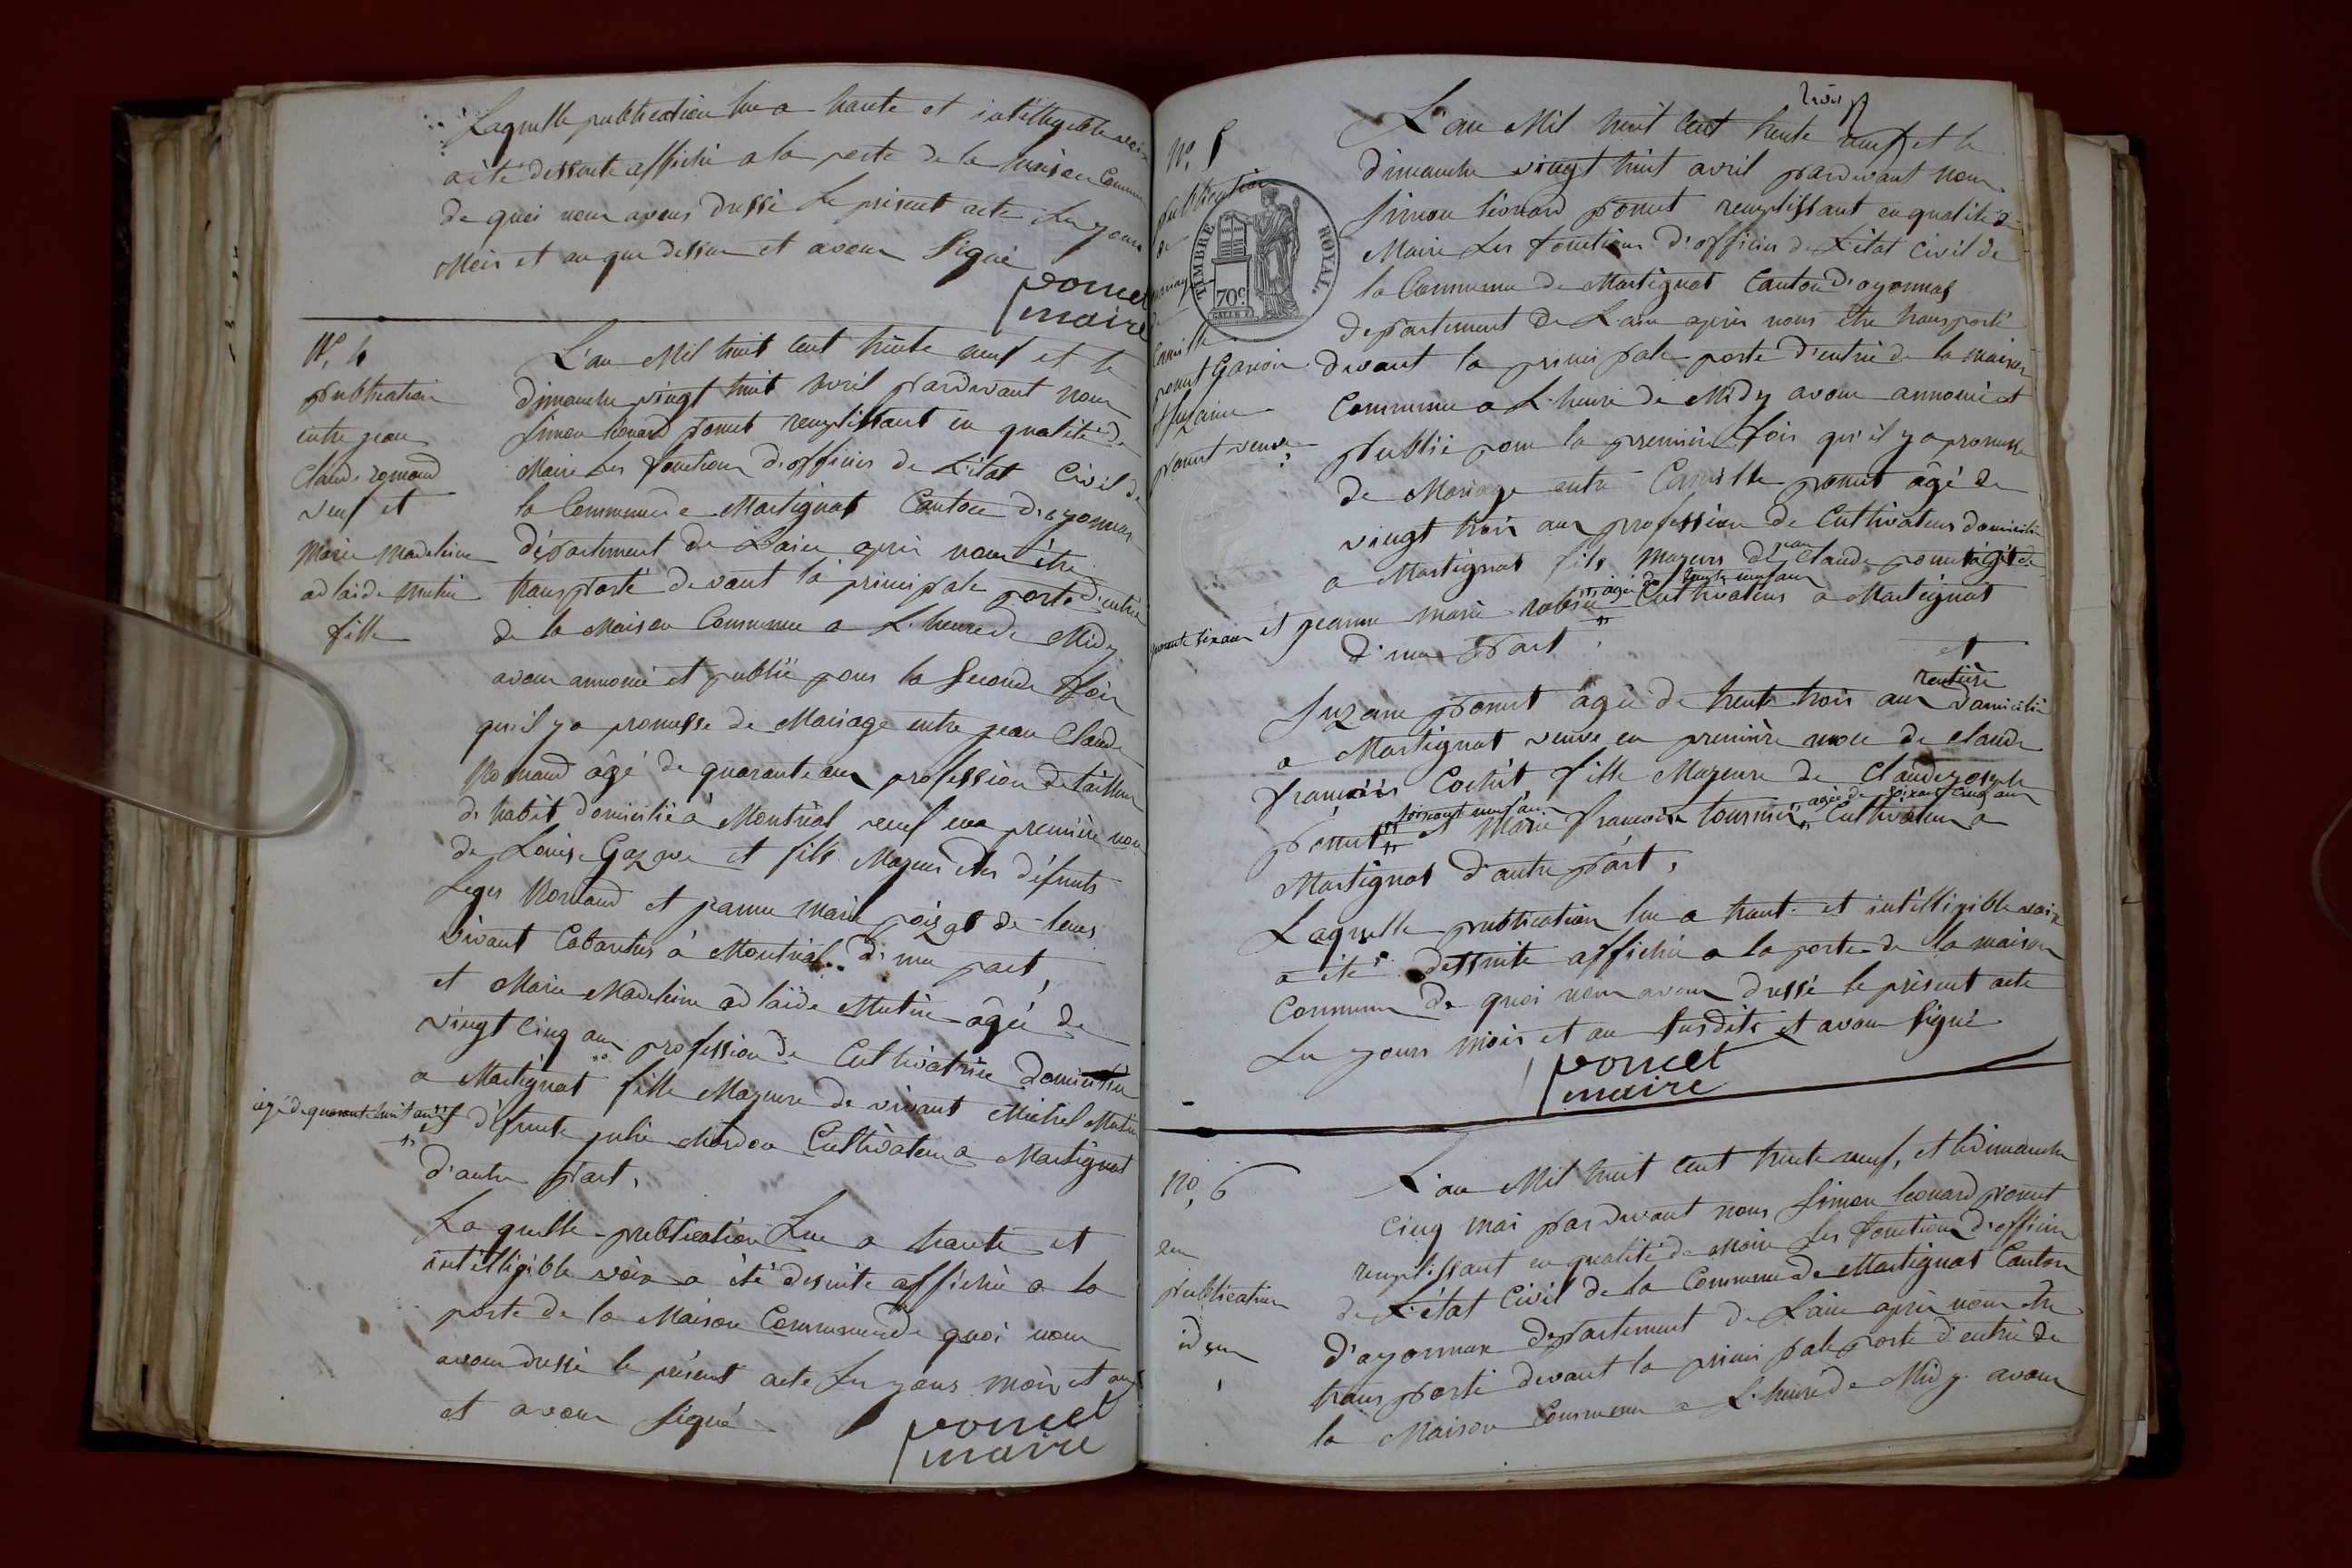 Laquelle publication lue a haute et intelligeable voix
a été dessuite affiché a la porte de la maison Commune
de quoi nous avons dressé le présent acte les jours
Mois et an que dessus et avons Signé
poncet
maire
N°. 4
publication
entre jean
Claude romand
veuf et
Marie Madeleine
adlaide mutin
fille
L'an Mil huit Cent trente neuf et le
dimanche vingt huit avril pardevant nous
Simon léonard poncet remplissant en qualité de
Maire Les fonctions d'officier de L'état Civil de
la Commune de Martignat Canton d'oyonnax
département de L'ain après nous être
transporté devant la principale porte d'entrée
de la Maison Commune a L'heure de Midy
avons annoncé et publié pour la Seconde fois
qu'il y a promesse de Mariage entre jean Claude
Romand âgé de quarante ans profession de tailleur
d'habit domicilié à Montréal veuf en première
de Louise et fils Majeur des défunts
Romand et jeanne Marie de leurs
vivant Cabaretiers à Montréal.. d'une part,
et Marie Madeleine adlaïde Mutin âgée de
vingt cinq ans profession de Cultivatrice domiciliée
a Martignat fille Majeure de vivant Michel Mutin
âgé de quarante huit ans et défunte julie Cultivateur a Martignat
d'autre part,
Laquelle publication Lue a haute et
intélligible voix a été desuite affiché a la
porte de la Maison Commune de quoi nous
avons dressé le présent acte les jours mois et an
et avons signé
poncet
maire
N°. 5
publication
de
mariage
de
Camille
poncet Garçon
Suzanne
poncet veuve
TIMBRE ROYAL.
70c.
trois
L'an Mil huit Cent trente neuf et le
dimanche vingt huit avril pardevant nous
Simon léonard poncet remplissant en qualité de
Maire Les fonctions d'officier de L'état Civil de
la Commune de Martignat Canton d'oyonnax
departement de L'ain après nous être transporté
devant la principale porte d'entrée de la maison
Commune a L'heure de Midy avons annoncé et
publié pour la première fois qu'il y a promesse
de Mariage entre Camille poncet âgé de
vingt trois ans profession de Cultivateur domicilié
a Martignat fils majeur de jean Claude poncet âgé de
quarante six ans et jeanne marie âgée de trente neuf ans Cultivateurs a Martignat
d'une part
et
Suzanne poncet âgée de trente trois ans rentière domiciliée
a Martignat veuve en première de claude
françois Cochet fille Majeure de Claude joseph
poncet soixante neuf ans et Marie françoise tournier âgée de soixante cinq ans Cultivateur a
Martignat d'autre part,
Laquelle publication lue a haute et intélligible voix
a été dessuite affiché a la porte de la maison
Commune de quoi nous avons dressé le présent acte
Les jours mois et an susdits et avons signé
poncet
maire
N°. 6
2em
publication
idem
L'an Mil huit Cent trente neuf, et le dimanche
cinq mai pardevant nous Simon leonard poncet
remplissant en qualité de Maire Les fonctions d'officier
de L'état Civil de la Commune de Martignat Canton
d'oyonnax departement de L'ain après nous être
transporté devant la principale porte d'entrée de
la Maison Commune a L'heure de Midy avons